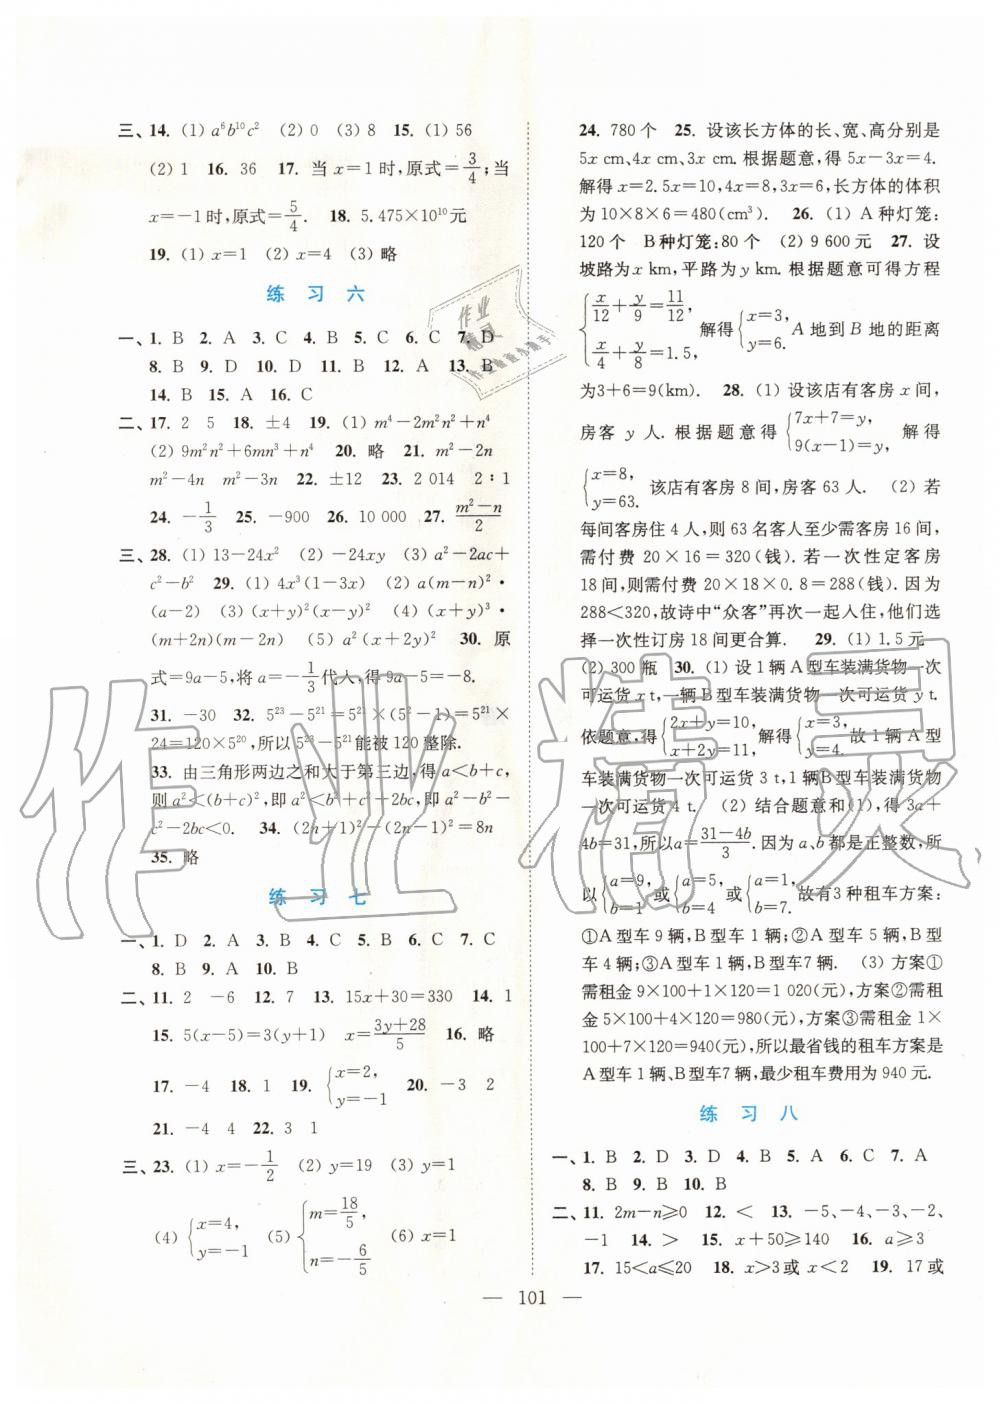 三、14. (1) a⁶b¹⁰c² (2) 0 (3) 8 15. (1) 56
(2) 1 16. 36 17. 当 x=1 时,原式=3/4;当
x=-1 时,原式=5/4. 18. 5.475×10¹⁰元
19. (1) x=1 (2) x=4 (3) 略
练 习 六
一、1. B 2. A 3. C 4. B 5. C 6. C 7. D
8. B 9. D 10. D 11. B 12. A 13. B
14. B 15. A 16. C
二、17. 2 5 18. ±4 19. (1) m⁴-2m²n²+n⁴
(2) 9m²n²+6mn³+n⁴ 20. 略 21. m²-2n
m²-4n m²-3n 22. ±12 23. 2 014 2∶1
24. -1/3 25. -900 26. 10 000 27. (m²-n)/2
三、28. (1) 13-24x² (2) -24xy (3) a²-2ac+
c²-b² 29. (1) 4x³(1-3x) (2) a(m-n)²·
(a-2) (3) (x+y)²(x-y)² (4) (x+y)³·
(m+2n)(m-2n) (5) a²(x+2y)² 30. 原
式=9a-5,将 a=-1/3代入,得 9a-5=-8.
31. -30 32. 5²³-5²¹=5²¹×(5²-1)=5²¹×
24=120×5²⁰,所以 5²³-5²¹能被 120 整除.
33. 由三角形两边之和大于第三边,得 a<b+c,
则 a²<(b+c)²,即 a²<b²+c²+2bc,即 a²-b²-
c²-2bc<0. 34. (2n+1)²-(2n-1)²=8n
35. 略
练 习 七
一、1. D 2. A 3. B 4. C 5. B 6. C 7. C
8. B 9. A 10. B
二、11. 2 -6 12. 7 13. 15x+30=330 14. 1
15. 5(x-5)=3(y+1) x=(3y+28)/5 16. 略
17. -4 18. 1 19. {x=2, y=-1 20. -3 2
21. -4 4 22. 3 1
三、23. (1) x=-1/2 (2) y=19 (3) y=1
(4) {x=4, y=-1 (5) {m=18/5, n=-6/5 (6) x=1
24. 780 个 25. 设该长方体的长、宽、高分别是
5x cm,4x cm,3x cm. 根据题意,得 5x-3x=4.
解得 x=2. 5x=10,4x=8,3x=6,长方体的体积
为 10×8×6=480(cm³). 26. (1) A 种灯笼:
120 个 B 种灯笼:80 个 (2) 9 600 元 27. 设
坡路为 x km,平路为 y km. 根据题意可得方程
{x/12+y/9=11/12, x/4+y/8=1.5, 解得{x=3, y=6. A 地到 B 地的距离
为3+6=9(km). 28. (1) 设该店有客房 x 间,
房客 y 人. 根据题意得 {7x+7=y, 9(x-1)=y, 解得
{x=8, y=63. 该店有客房 8 间,房客 63 人. (2) 若
每间客房住 4 人,则 63 名客人至少需客房 16 间,
需付费 20×16=320(钱). 若一次性定客房
18 间,则需付费 20×18×0.8=288(钱). 因为
288<320,故诗中“众客”再次一起入住,他们选
择一次性订房 18 间更合算. 29. (1) 1.5 元
(2) 300 瓶 30. (1) 设 1 辆 A 型车装满货物一次
可运货 x t,一辆 B 型车装满货物一次可运货 y t.
依题意,得{2x+y=10, x+2y=11, 解得{x=3, y=4. 故 1 辆 A 型
车装满货物一次可运货 3 t,1 辆 B 型车装满货物
一次可运货 4 t. (2) 结合题意和(1),得 3a+
4b=31,所以a=(31-4b)/3. 因为 a、b 都是正整数,所
以{a=9, b=1 或{a=5, b=4 或{a=1, b=7. 故有 3 种租车方案:
①A 型车 9 辆,B 型车 1 辆;②A 型车 5 辆,B 型
车 4 辆;③A 型车 1 辆,B 型车7 辆. (3) 方案①
需租金 9×100+1×120=1 020(元),方案②需租
金 5×100+4×120=980(元),方案③需租金 1×
100+7×120=940(元),所以最省钱的租车方案是
A 型车 1 辆、B 型车 7 辆,最少租车费用为 940 元.
练 习 八
一、1. B 2. D 3. D 4. B 5. A 6. C 7. A
8. B 9. B 10. B
二、11. 2m-n≥0 12. < 13. -5、-4、-3、-2、
-1 14. > 15. x+50≥140 16. a≥3
17. 15<a≤20 18. x>3 或 x<2 19. 17 或
— 101 —
作业精灵